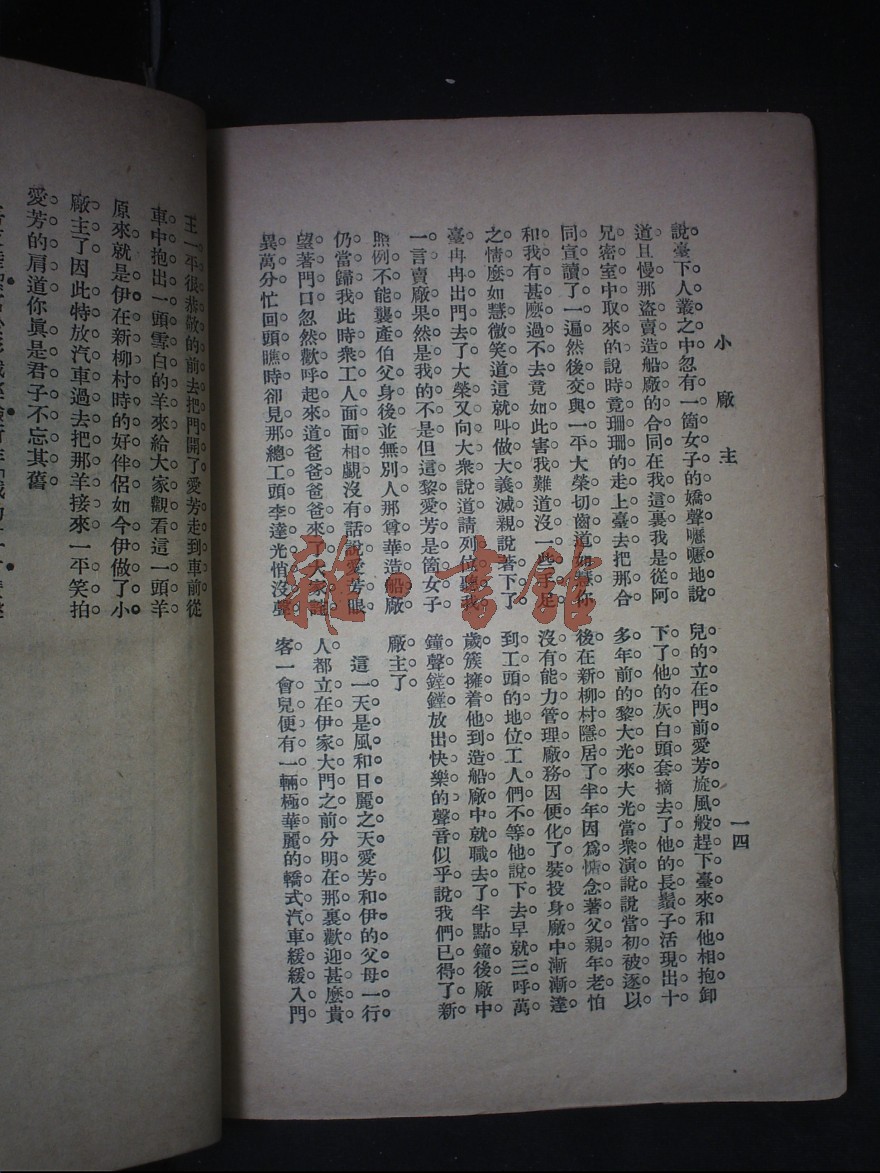 小廠主
一四
說臺下人叢之中忽有一箇女子的嬌聲嚦嚦地說
道且慢那盜賣造船廠的合同在我這裏我是從阿
兄密室中取來的說時竟珊珊的走上臺去把那合
同宣讀了一遍然後交與一平大榮切齒道如慧你
和我有甚麽過不去竟如此害我難道沒一些手足
之情麼如慧微笑道這就叫做大義滅親說著下了
臺冉冉出門去了大榮又向大衆說道請列位聽我
一言賣廠果然是我的不是但這黎愛芳是箇女子
照例不能襲產伯父身後並無別人那尊華造船廠
仍當歸我此時衆工人面面相覷沒有話說愛芳眼
望著門口忽然歡呼起來道爸爸爸爸來了大家詫
異萬分忙回頭瞧時卻見那總工頭李達光悄沒聲
兒的立在門前愛芳旋風般趕下臺來和他相抱卸
下了他的灰白頭套摘去了他的長鬚子活現出十
多年前的黎大光來大光當衆演說說當初被逐以
後在新柳村隱居了半年因爲惦念著父親年老怕
沒有能力管理廠務因便化了裝投身廠中漸漸達
到工頭的地位工人們不等他說下去早就三呼萬
歲簇擁着他到造船廠中就職去了半點鐘後廠中
鐘聲鏜鏜放出快樂的聲音似乎說我們已得了新
廠主了
這一天是風和日麗之天愛芳和伊的父母一行
人都立在伊家大門之前分明在那裏歡迎甚麼貴
客一會兒便有一輛極華麗的轎式汽車緩緩入門
王一平很恭敬的前去把門開了愛芳走到車前從
車中抱出一頭雪白的羊來給大家觀看這一頭羊
原來就是伊在新柳村時的好伴侶如今伊做了小
廠主了因此特放汽車過去把那羊接來一平笑拍
愛芳的肩道你眞是君子不忘其舊
雜·書館